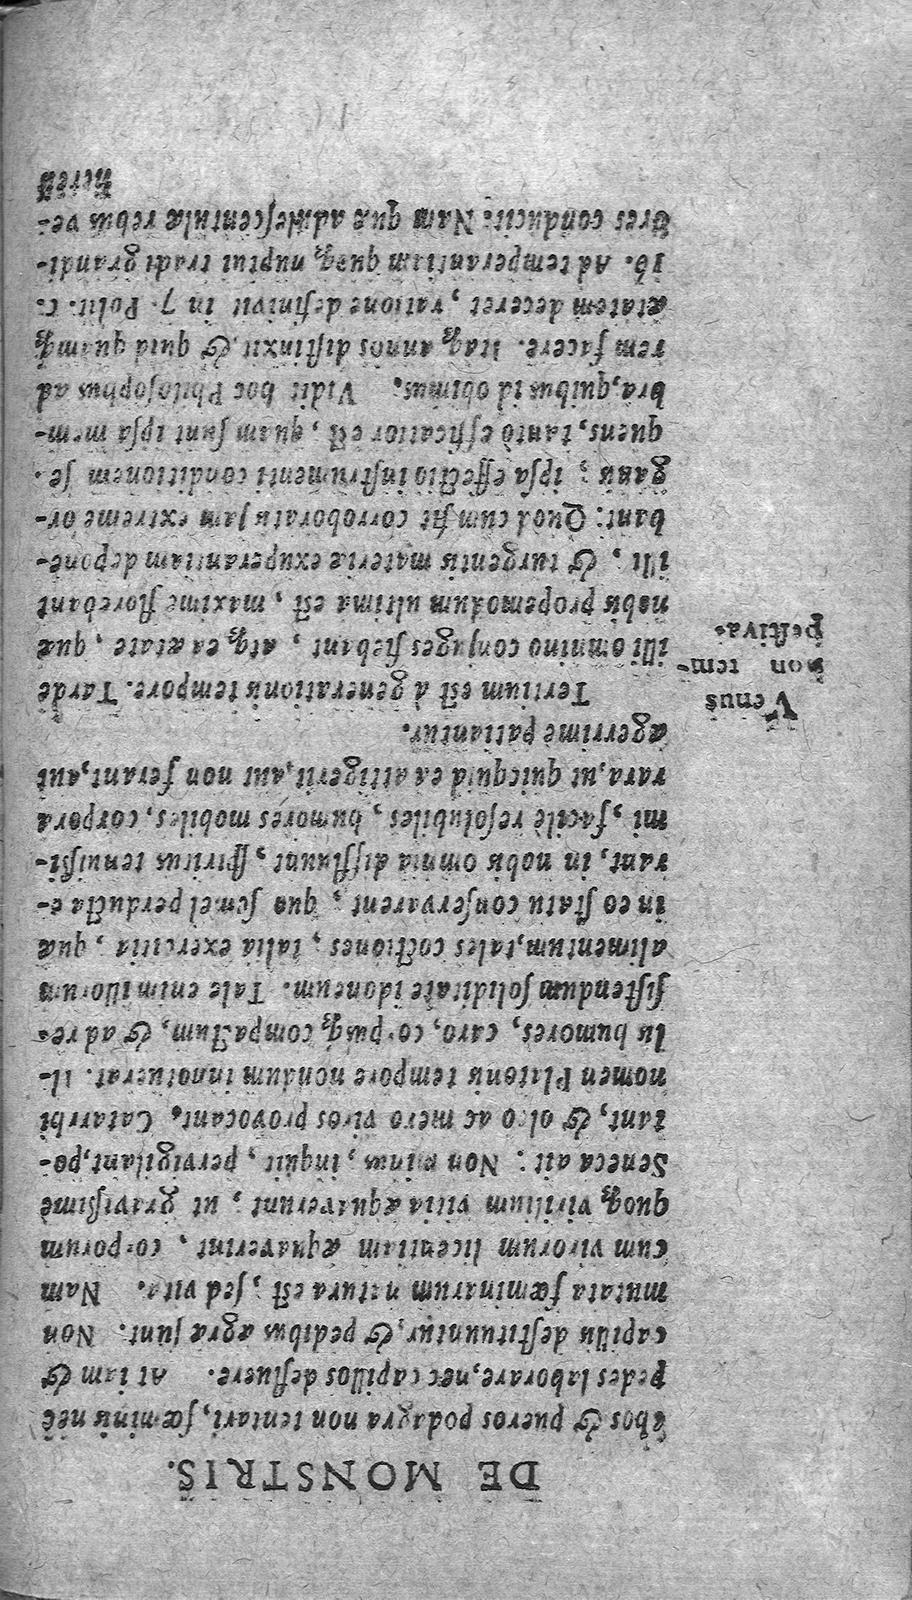 DE MONSTRIS.
chos & pueros podagra non tentari, fœminis nec
pedes laborare, nec capillos defluere. At iam &
capillis destituuntur, & pedibus ægræ sunt. Non
mutata fœminarum natura est, sed vita. Nam
cum virorum licentiam æquaverint, corporum
quoq; virilium vitia æquaverunt, ut gravißimè
Seneca ait: Non minus, inquit, pervigilant, po-
tant, & oleo ac mero viros provocant. Catarrhi
nomen Platonis tempore nondum innotuerat. Il-
lis humores, caro, corpusq; compactum, & ad re-
sistendum soliditate idoneum. Tale enim illorum
alimentum, tales coctiones, talia exercitia, quæ
in eo statu conservarent, quo semel perducta e-
rant, in nobis omnia diffluunt, spiritus tenuißi-
mi, facilè resolubiles, humores mobiles, corpora
rara, ut quicquid ea attigerit, aut non ferant, aut
ægerrimè patiantur.
Tertium est à generationis tempore. Tardè
Venus
non tem-
pestiva.
illi omnino conjuges fiebant, atq; ea ætate, quæ
nobis propemodum ultima est, maximè florebant
illi, & turgentis materiæ exuperantiam depone-
bant: Quod cum fit corroboratis jam extremè or-
ganis, ipsa effectio instrumenti conditionem se-
quens, tantò efficatior est, quam sunt ipsa mem-
bra, quibus id obimus. Vidit hoc Philosophus ad
rem facere. Itaq; annos distinxit, & quid quamq;
ætatem deceret, ratione definivit in 7. Polit. c.
16. Ad temperantiam quoq; nuptui tradi grandi-
ores conducit: Nam quæ adolescentulæ rebus ve-
nereis